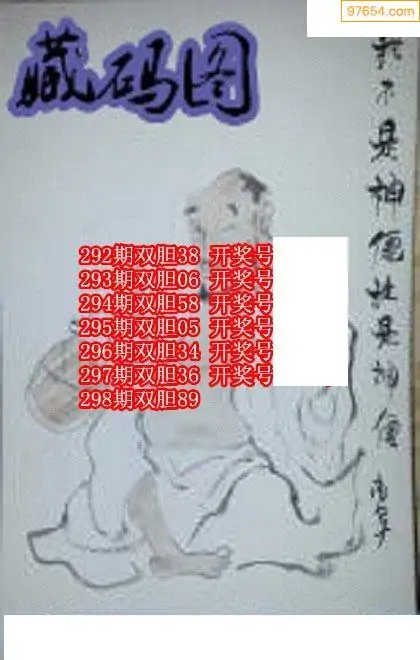 97654.com
藏码图
292期双胆38 开奖号
293期双胆06 开奖号
294期双胆58 开奖号
295期双胆05 开奖号
296期双胆34 开奖号
297期双胆36 开奖号
298期双胆89
是神
是神